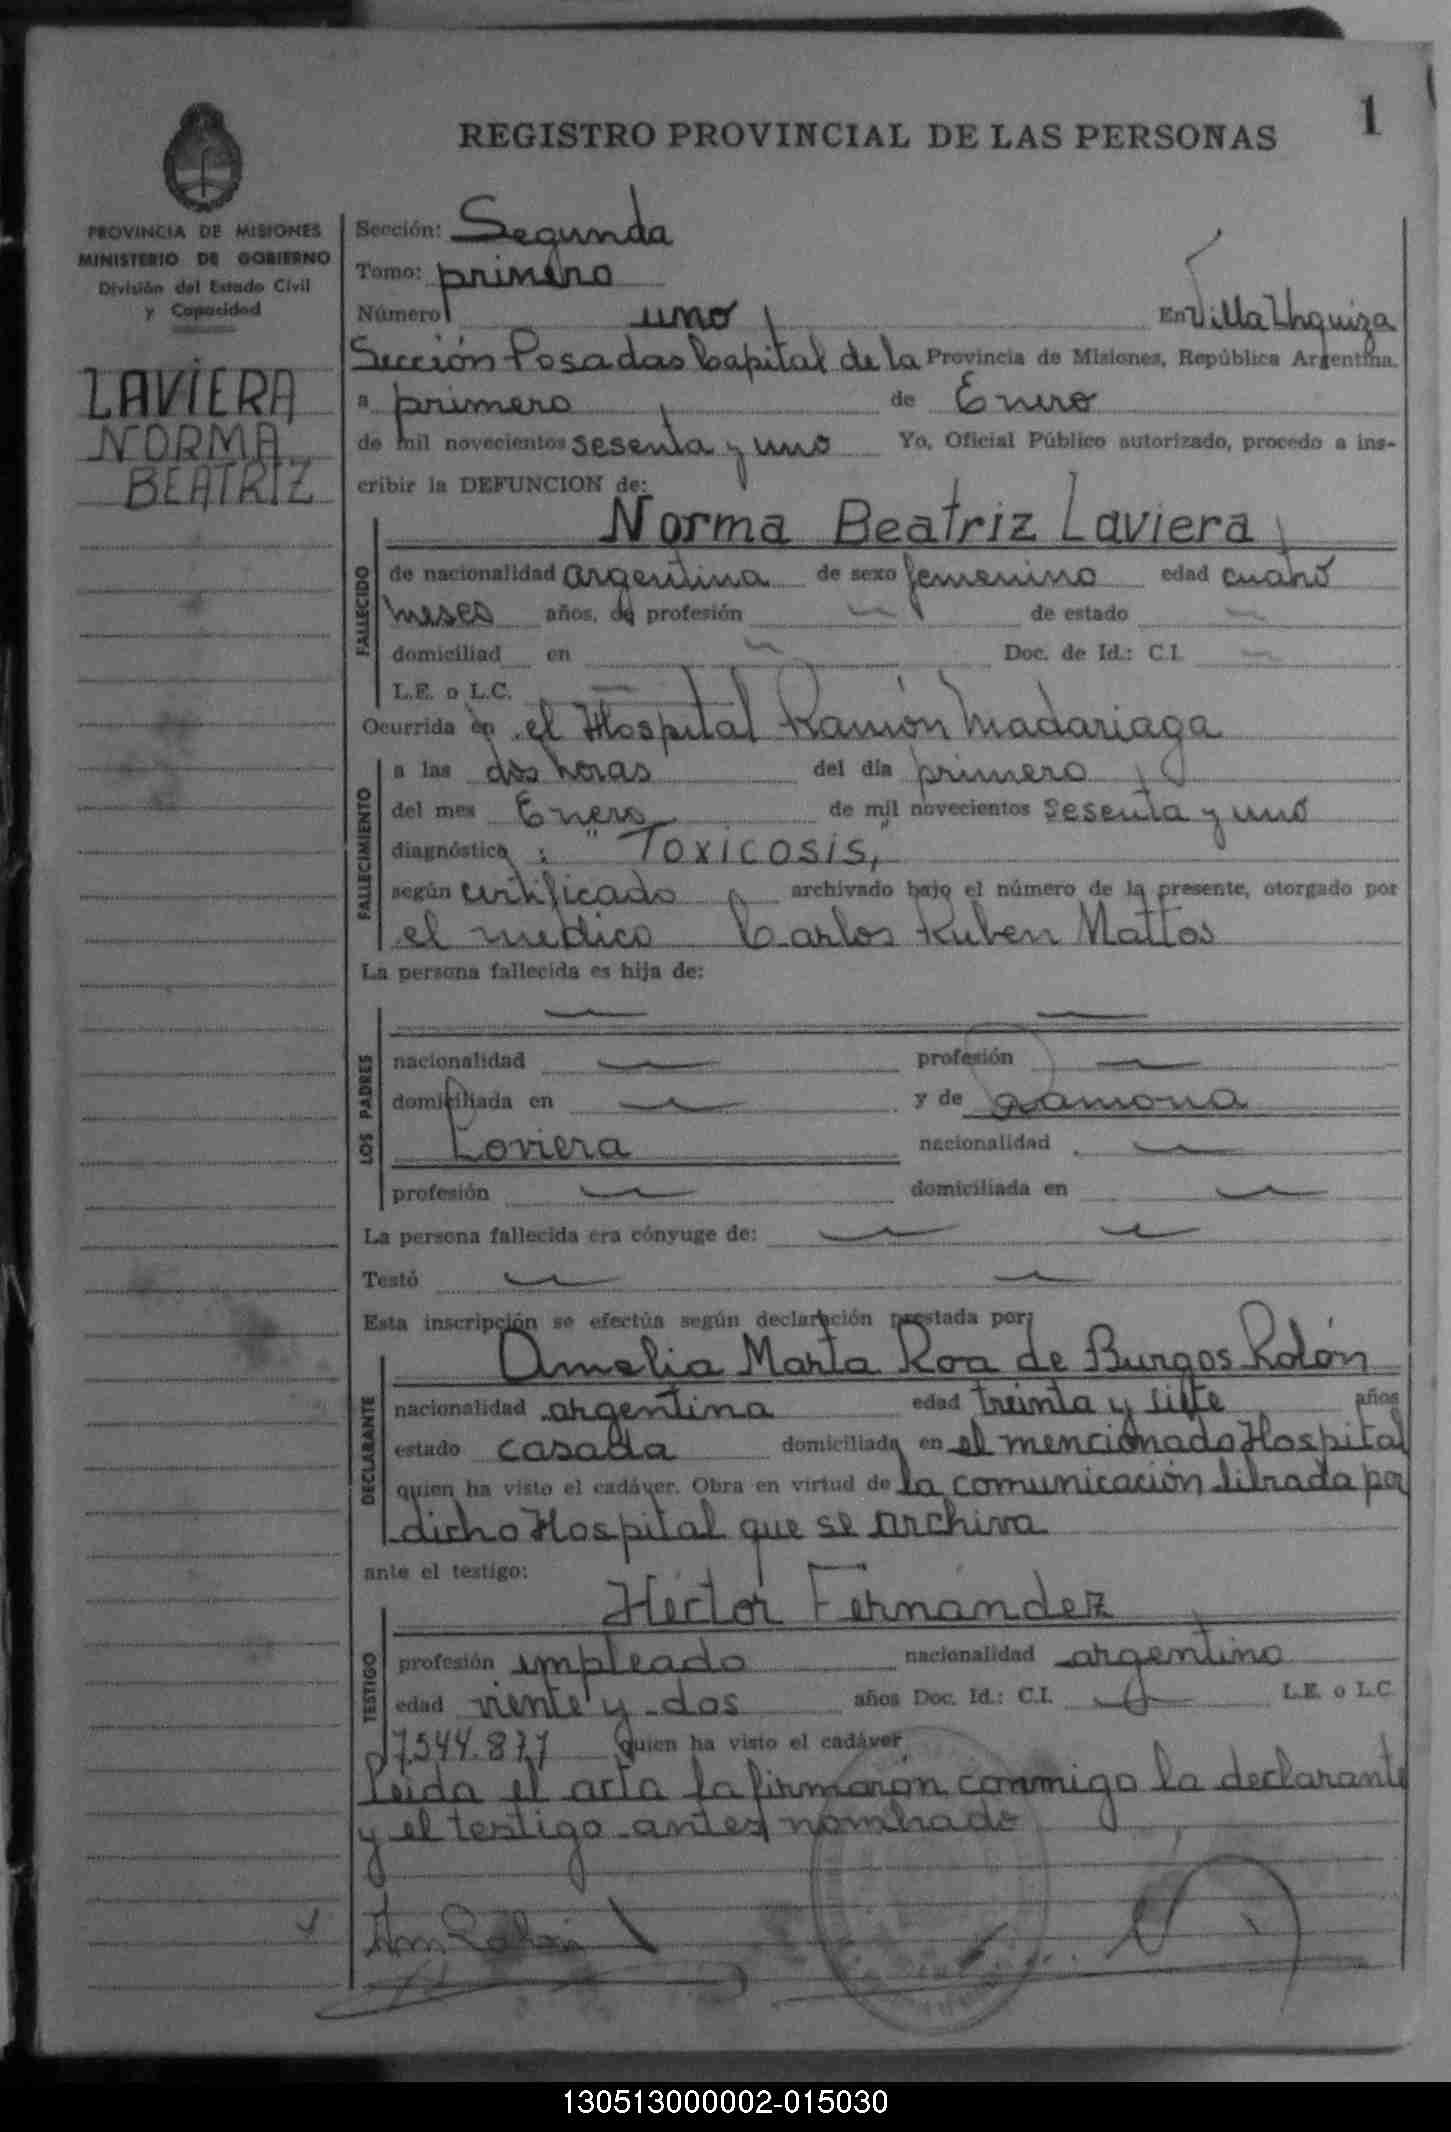 1
REGISTRO PROVINCIAL DE LAS PERSONAS
PROVINCIA DE MISIONES
MINISTERIO DE GOBIERNO
División del Estado Civil
y Capacidad
LAVIERA
NORMA
BEATRIZ
Sección: Segunda
Tomo: primero
Número uno En Villa Urquiza
Sección Posadas Capital de la Provincia de Misiones, República Argentina.
a primero de Enero
de mil novecientos sesenta y uno Yo, Oficial Público autorizado, procedo a ins-
cribir la DEFUNCION de:
Norma Beatriz Laviera
FALLECIDO
de nacionalidad argentina de sexo femenino edad cuatro
meses años, de profesión — de estado —
domiciliad en — Doc. de Id.: C.I. —
L.E. o L.C. —
Ocurrida en el Hospital Ramón Madariaga
FALLECIMIENTO
a las dos horas del día primero
del mes Enero de mil novecientos sesenta y uno
diagnóstico : "Toxicosis,"
según certificado archivado bajo el número de la presente, otorgado por
el medico Carlos Ruben Mattos
La persona fallecida es hija de:
LOS PADRES
— —
nacionalidad — profesión —
domiciliada en — y de Ramona
Loviera nacionalidad —
profesión — domiciliada en —
La persona fallecida era cónyuge de: — —
Testó — —
Esta inscripción se efectúa según declaración prestada por:
DECLARANTE
Amelia Marta Roa de Burgos Rolón
nacionalidad argentina edad treinta y siete años
estado casada domiciliada en el mencionado Hospital
quien ha visto el cadáver. Obra en virtud de la comunicación librada por
dicho Hospital que se archiva
ante el testigo:
Héctor Fernández
TESTIGO
profesión empleado nacionalidad argentino
edad viente y dos años Doc. Id.: C.I. — L.E. o L.C.
7.544.877 quien ha visto el cadáver
Leida el acta la firmaron conmigo la declarante
y el testigo antes nombrado
130513000002-015030